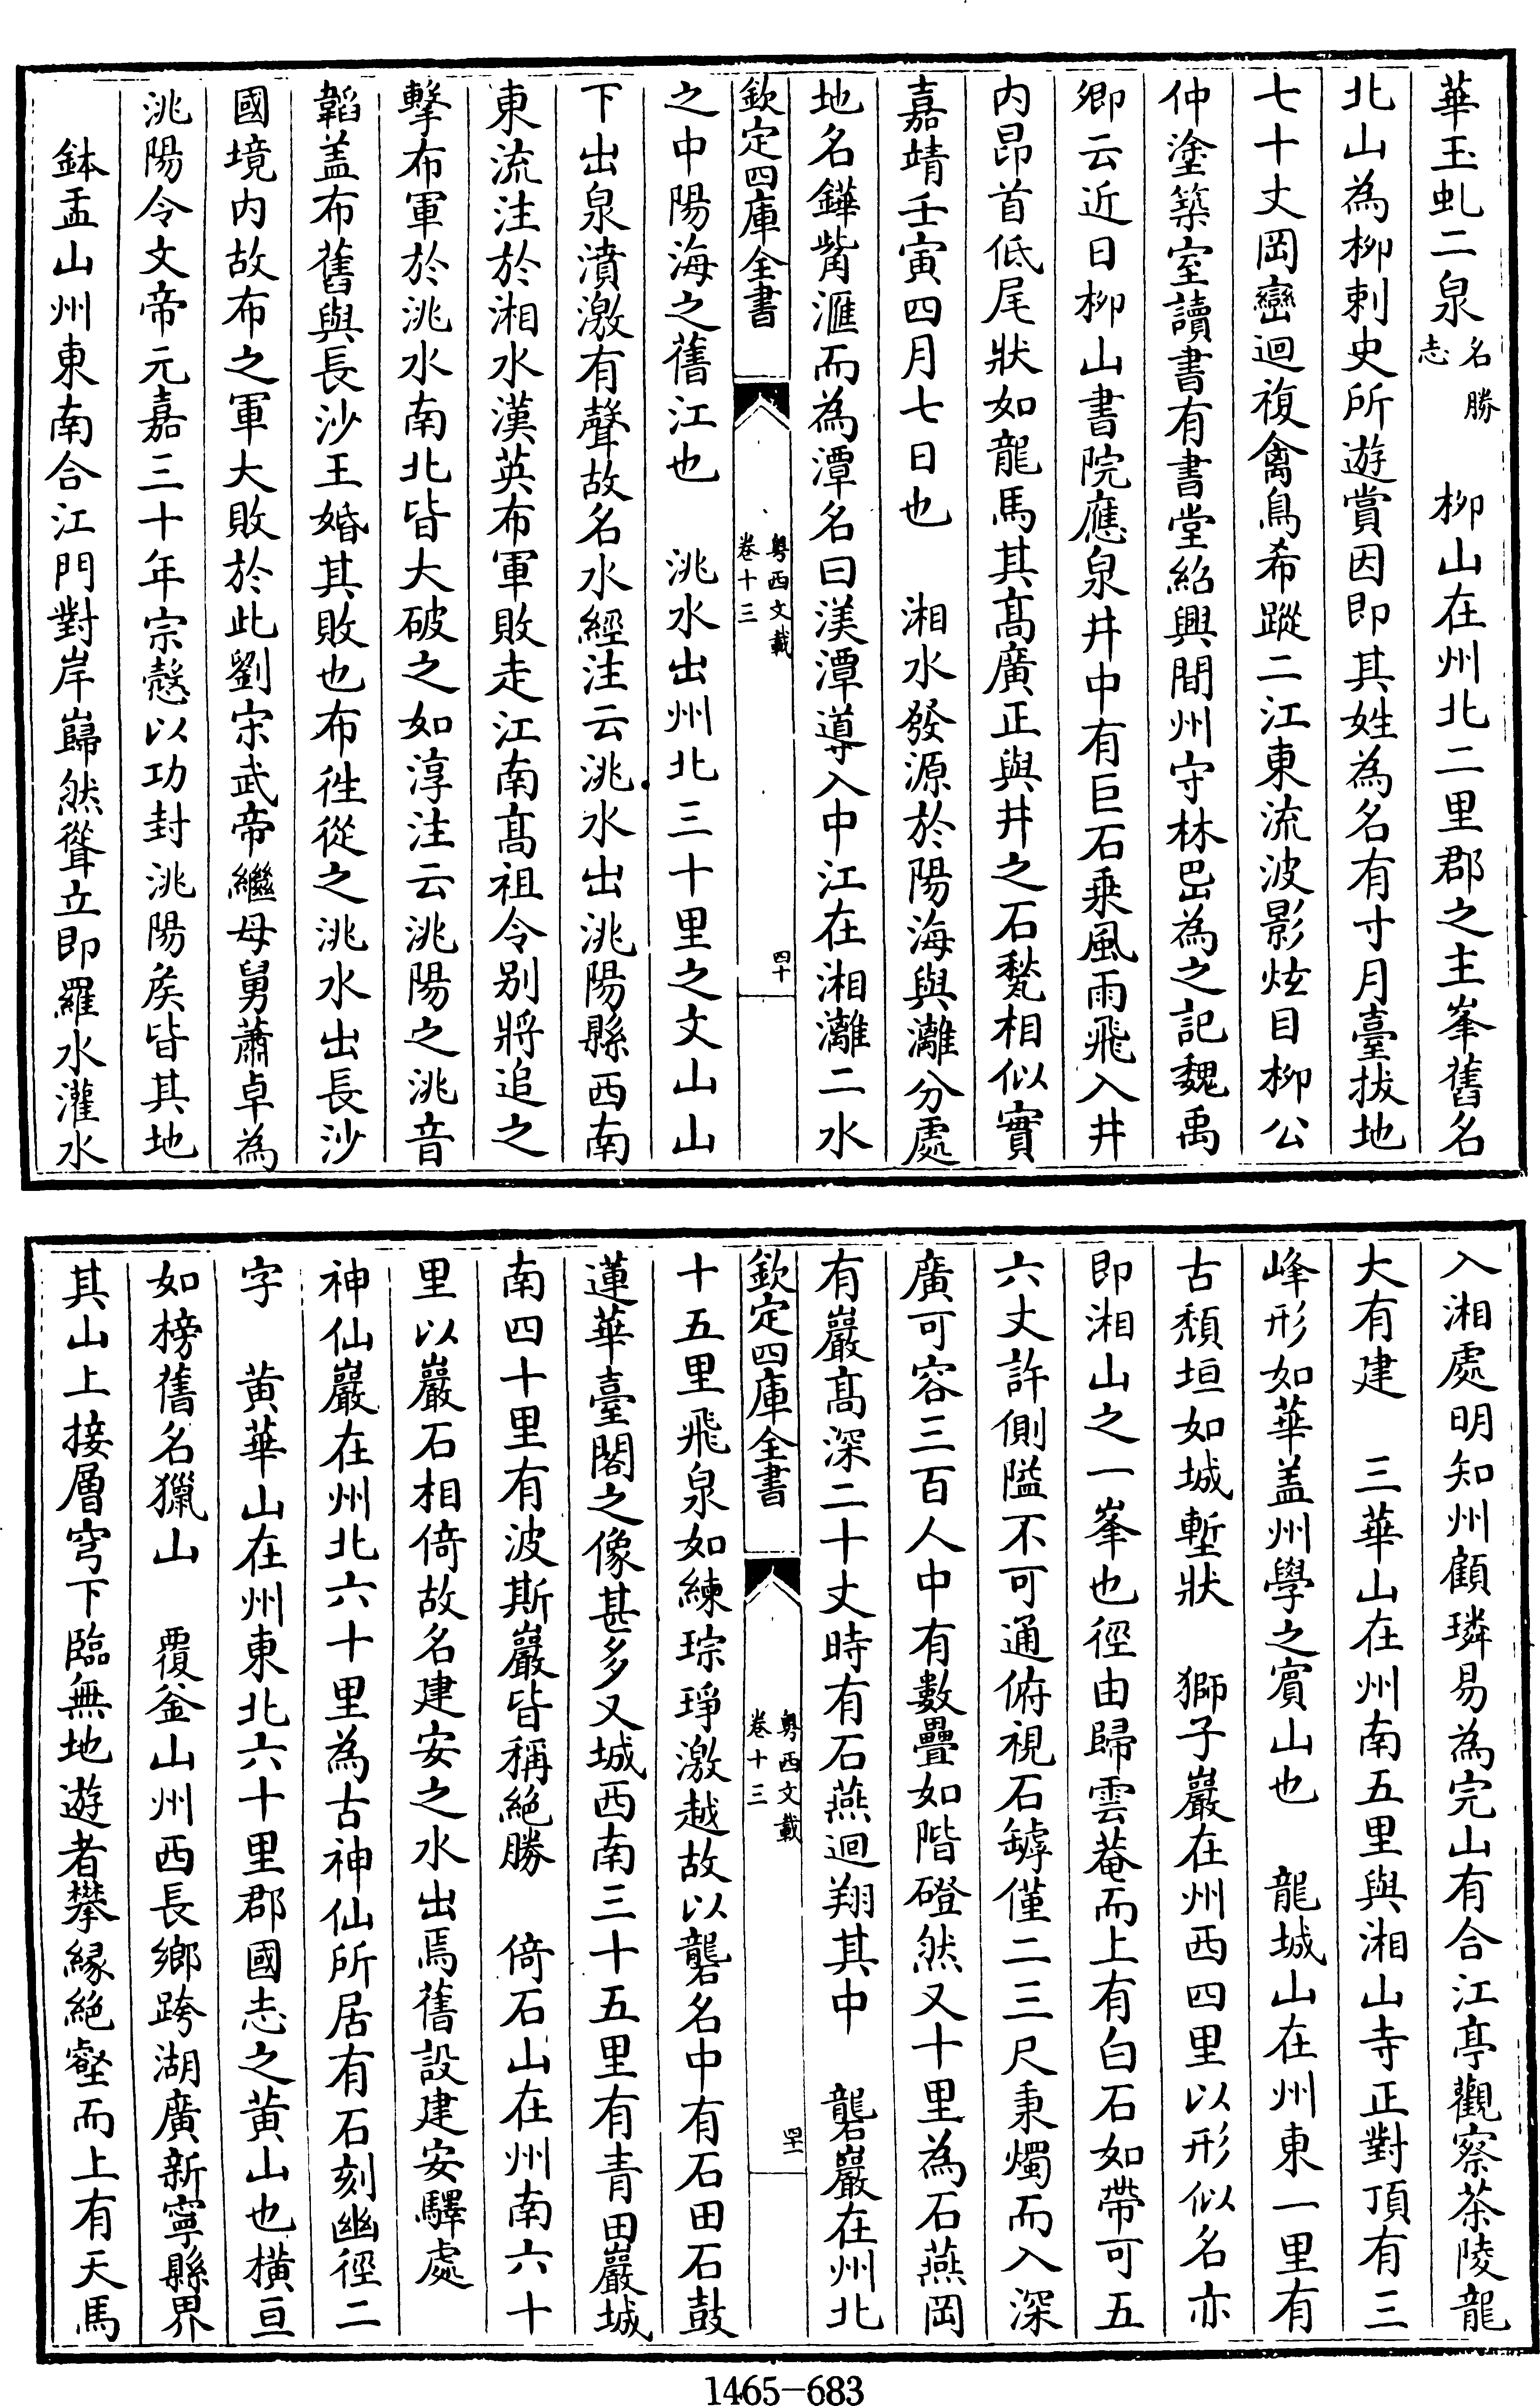 華玉虬二泉名勝志　柳山在州北二里郡之主峯舊名
北山為柳刺史所遊賞因即其姓為名有寸月臺拔地
七十丈岡巒迴複禽鳥希蹤二江東流波影炫目柳公
仲塗築室讀書有書堂紹興間州守林岊為之記魏禹
卿云近日柳山書院應泉井中有巨石乗風雨飛入井
内昂首低尾狀如龍馬其髙廣正與井之石甃相似實
嘉靖壬寅四月七日也　湘水發源於陽海與灕分處
地名鏵觜滙而為潭名曰渼潭導入中江在湘灕二水
欽定四庫全書　粤西文載 卷十三　四十
之中陽海之舊江也　洮水出州北三十里之文山山
下出泉濆激有聲故名水經注云洮水出洮陽縣西南
東流注於湘水漢英布軍敗走江南髙祖令别將追之
擊布軍於洮水南北皆大破之如淳注云洮陽之洮音
韜盖布舊與長沙王婚其敗也布徃從之洮水出長沙
國境内故布之軍大敗於此劉宋武帝繼母舅蕭卓為
洮陽令文帝元嘉三十年宗慤以功封洮陽矦皆其地
鉢盂山州東南合江門對岸巋然聳立即羅水灌水
入湘處明知州顧璘易為完山有合江亭觀察茶陵龍
大有建　三華山在州南五里與湘山寺正對頂有三
峰形如華盖州學之賓山也　龍城山在州東一里有
古頽垣如城塹狀　獅子巖在州西四里以形似名亦
即湘山之一峯也徑由歸雲菴而上有白石如帶可五
六丈許側隘不可通俯視石罅僅二三尺秉燭而入深
廣可容三百人中有數疊如階磴然又十里為石燕岡
有巖髙深二十丈時有石燕迴翔其中　礱巖在州北
欽定四庫全書　粤西文載 卷十三　四十一
十五里飛泉如練琮琤激越故以礱名中有石田石鼓
蓮華臺閣之像甚多又城西南三十五里有青田巖城
南四十里有波斯巖皆稱絶勝　倚石山在州南六十
里以巖石相倚故名建安之水出焉舊設建安驛處
神仙巖在州北六十里為古神仙所居有石刻幽徑二
字　黄華山在州東北六十里郡國志之黄山也横亘
如榜舊名獵山　覆釡山州西長鄉跨湖廣新寧縣界
其山上接層穹下臨無地遊者攀縁絶壑而上有天馬
1465-683